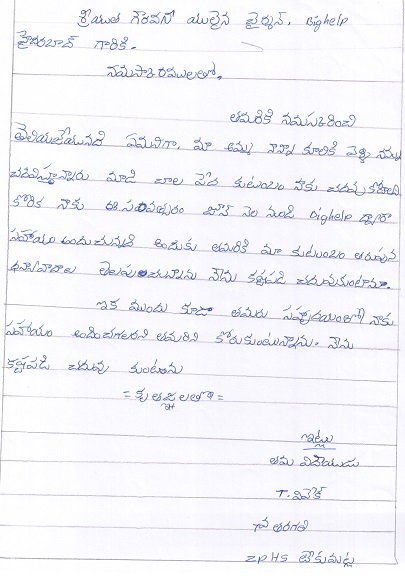 శ్రీయుత గౌరవనీయులైన చైర్మన్, Bighelp
హైదరాబాద్ గారికి.
నమస్కారములతో,
తమరికి నమస్కరించి
తెలియజేయునది ఏమనగా, మా అమ్మ నాన్న కూలికి వెళ్ళి నన్ను
చదివిస్తున్నారు మాది చాల పేద కుటుంబం నాకు చదువుకోవాలని
కోరిక నాకు ఈ సంవత్సరం జూన్ నెల నుండి Bighelp ద్వారా
సహాయం అందుచున్నది అందుకు తమరికి మా కుటుంబం తరుపున
ధన్యవాదాలు తెలుపుచున్నాను నేను కష్టపడి చదువుకుంటాను.
ఇక ముందు కూడా తమరు సహృదయంతో నాకు
సహాయం అందించగలరని తమరిని కోరుకుంటున్నాను. నేను
కష్టపడి చదువు కుంటాను
= కృతజ్ఞలతో =
ఇట్లు
తమ విదేయుడు
T. వివేక్
7వ తరగతి
ZPHS టేకుమట్ల